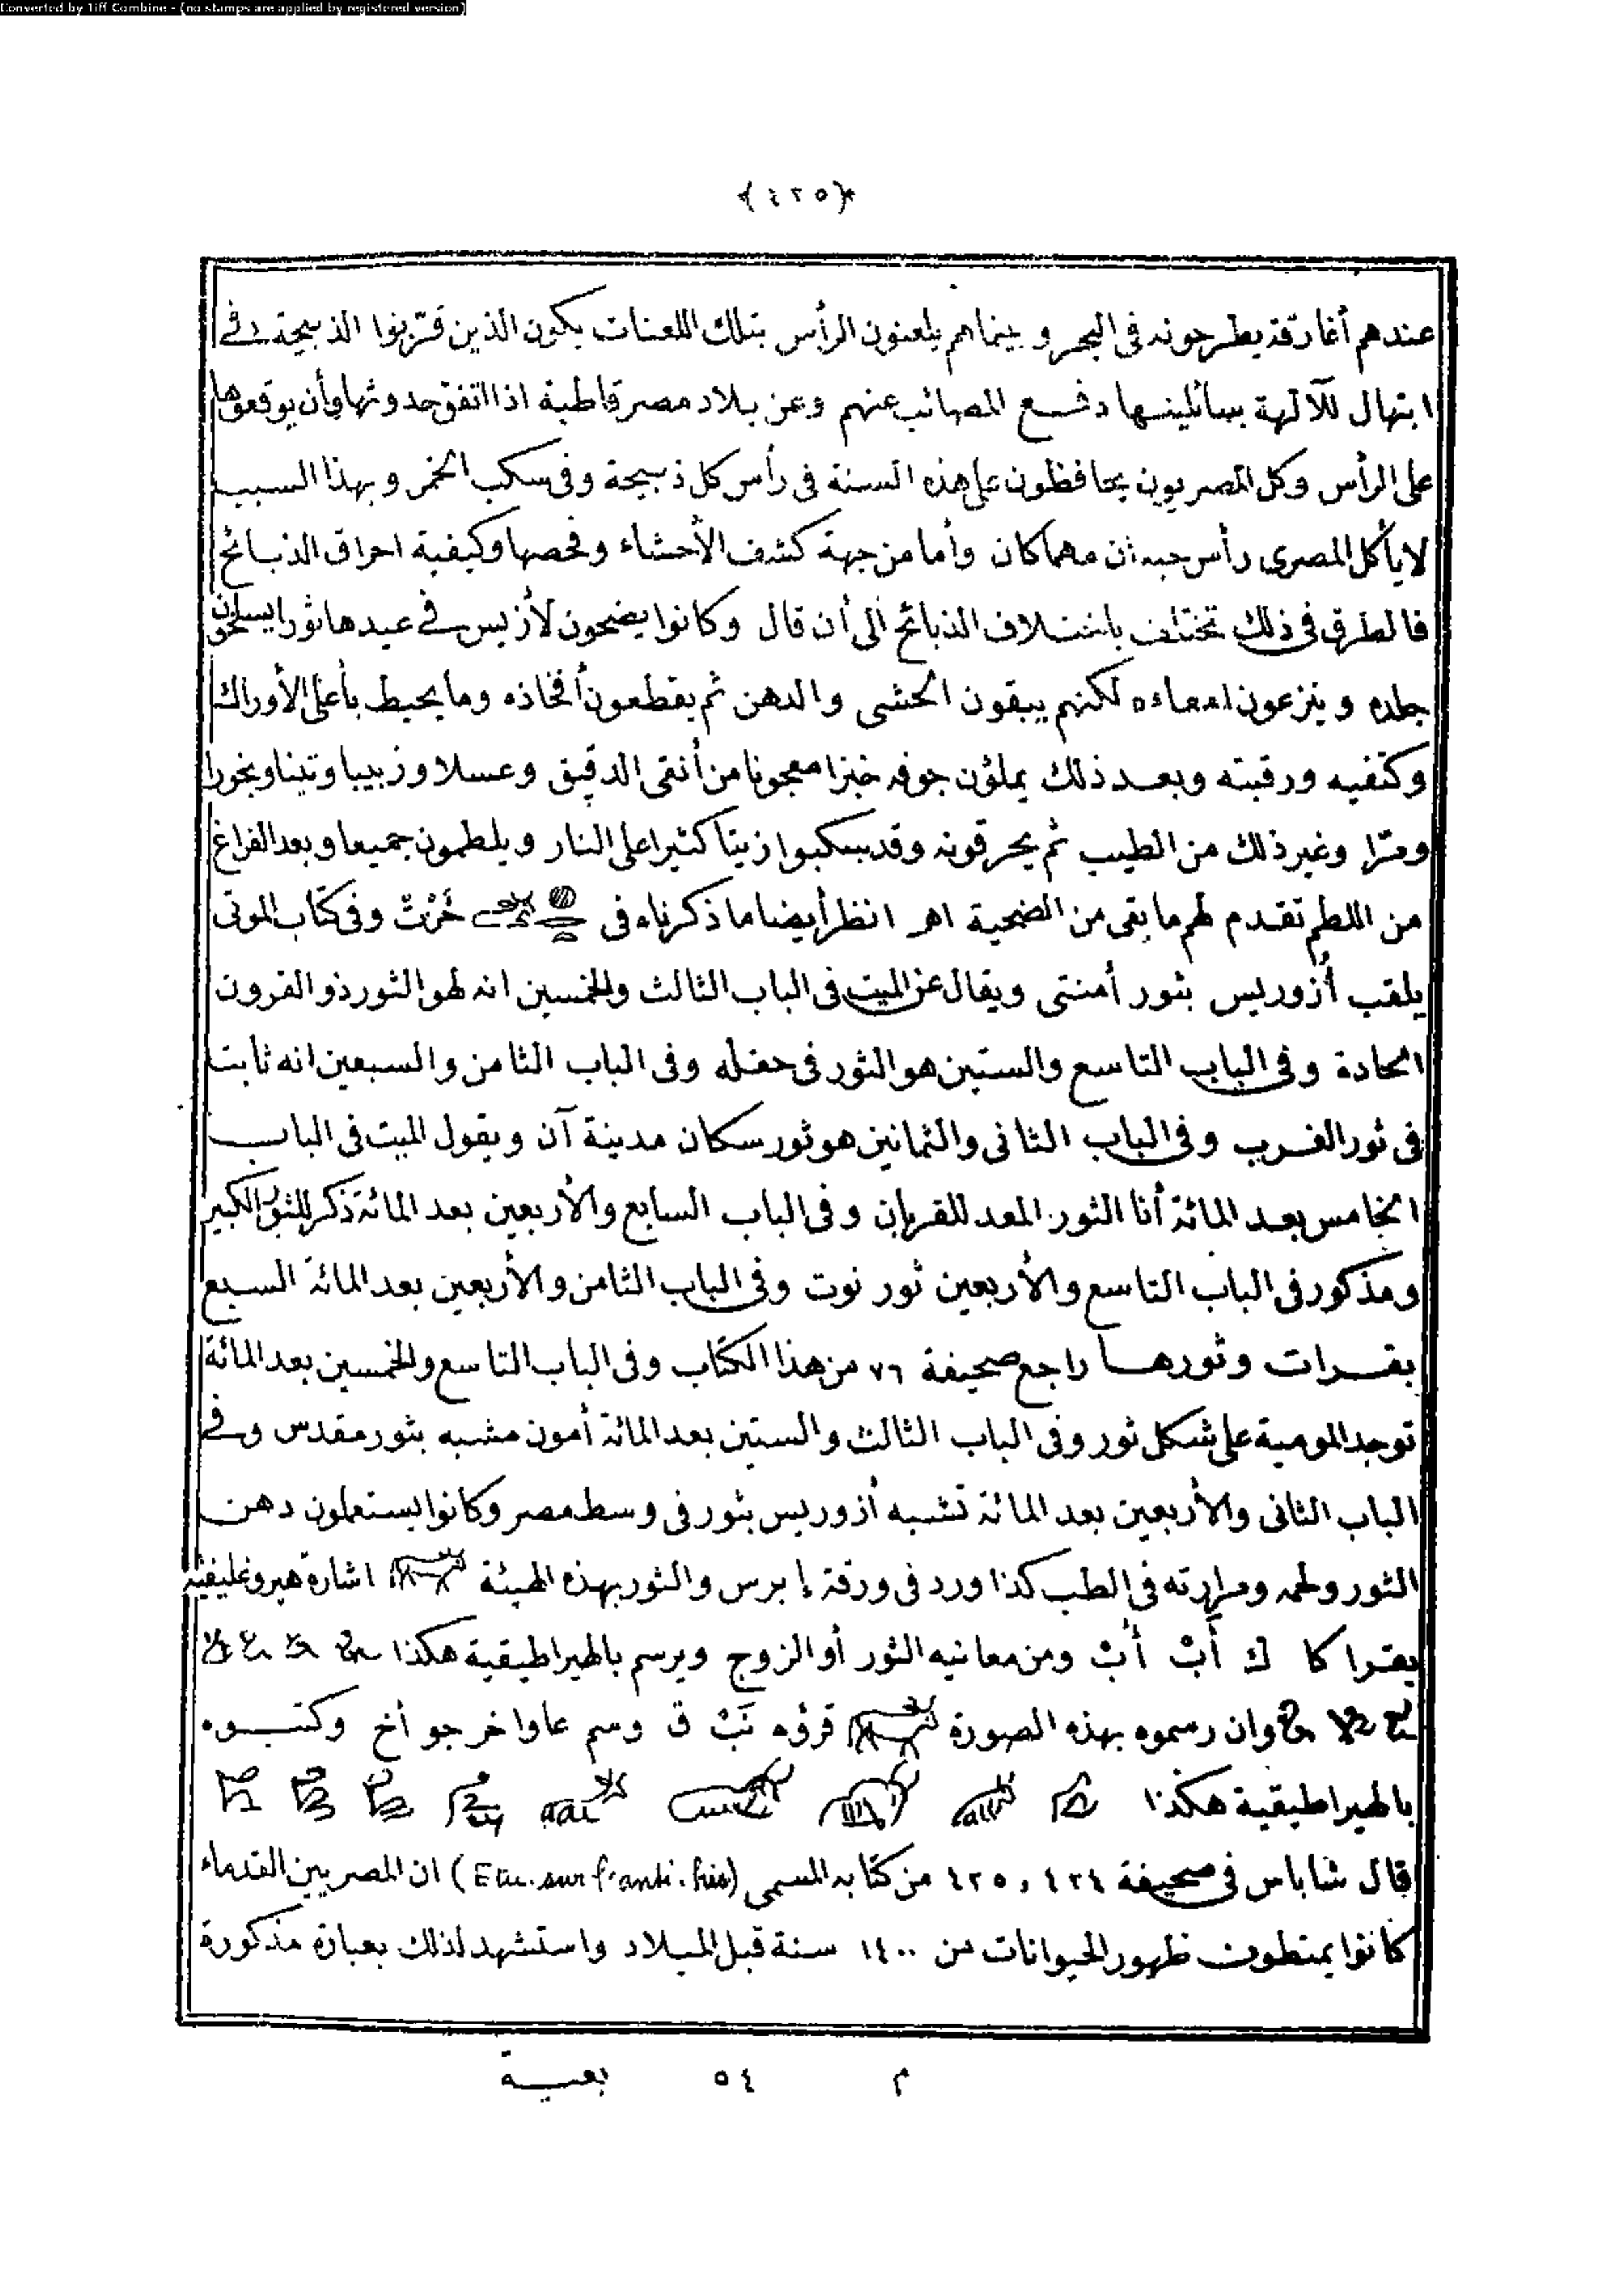 Converted by Tiff Combine - (no stamps are applied by registered version)
﴿٤٢٥﴾
عندهم أغارقة يطرحونه فى البحر وبينماهم يلعنون الرأس بتلك اللعنات يكون الذين قربوا الذبيحة فى
ابتهال للآلهة سائلينها دفع المصائب عنهم وعن بلاد مصر قاطبة اذا اتفق حدوثها وأن يوقعوها
على الرأس وكل المصريون يحافظون على هذه السنة فى رأس كل ذبيحة وفى سكب الخمر وبهذا السبب
لا يأكل المصرى رأس حيوان مهما كان وأما من جهة كشف الأحشاء وفحصها وكيفية احراق الذبائح
فالطرق فى ذلك تختلف باختلاف الذبائح الى أن قال وكانوا يضحون لأزيس فى عيدها ثورا يسلخون
جلده وينزعون امعاءه لكنهم يبقون الحشى والدهن ثم يقطعون أفخاذه وما يحيط بأعلى الأوراك
وكتفيه ورقبته وبعد ذلك يملؤن جوفه خبزا معجونا من أنقى الدقيق وعسلا وزبيبا وتينا وبخورا
ومرّا وغير ذلك من الطيب ثم يحرقونه وقد سكبوا زيتا كثيرا على النار ويلطمون جميعا وبعد الفراغ
من اللطم تقدم لهم ما بقى من الضحية اهـ انظر أيضا ما ذكرناه فى خَرْتْ وفى كتاب الموتى
يلقب أزوريس بثور أمنتى ويقال عن الميت فى الباب الثالث والخمسين انه لهو الثور ذو القرون
الحادة وفى الباب التاسع والستين هو الثور فى حقله وفى الباب الثامن والسبعين انه ثابت
فى ثور الغرب وفى الباب الثانى والثمانين هو ثور سكان مدينة آن ويقول الميت فى الباب
الخامس بعد المائة أنا الثور المعد للقربان وفى الباب السابع والأربعين بعد المائة ذكر للثور الكبير
ومذكور فى الباب التاسع والأربعين ثور نوت وفى الباب الثامن والأربعين بعد المائة السبع
بقرات وثورها راجع صحيفة ٧٦ من هذا الكتاب وفى الباب التاسع والخمسين بعد المائة
توجد المومية على شكل ثور وفى الباب الثالث والستين بعد المائة أمون مشبه بثور مقدس وفى
الباب الثانى والأربعين بعد المائة تشبه أزوريس بثور فى وسط مصر وكانوا يستعملون دهن
الثور ولحمه ومرارته فى الطب كذا ورد فى ورقة إبرس والثور بهذه الهيئة اشارة هيروغليفية
يقرا كا ك أَبْ أُبْ ومن معانيه الثور أو الزوج ويرسم بالهيراطيقية هكذا
وان رسموه بهذه الصورة قرؤه نَبْ ق وسم عاوا خرجو أخ وكتبوه
بالهيراطيقية هكذا
قال شاباس فى صحيفة ٤٢٤ و ٤٢٥ من كتابه المسمى (Etu. sur l'anti. his) ان المصريين القدماء
كانوا يمتطون ظهور الحيوانات من ١٤٠٠ سنة قبل الميلاد واستشهد لذلك بعبارة مذكورة
م ٥٤ بعية